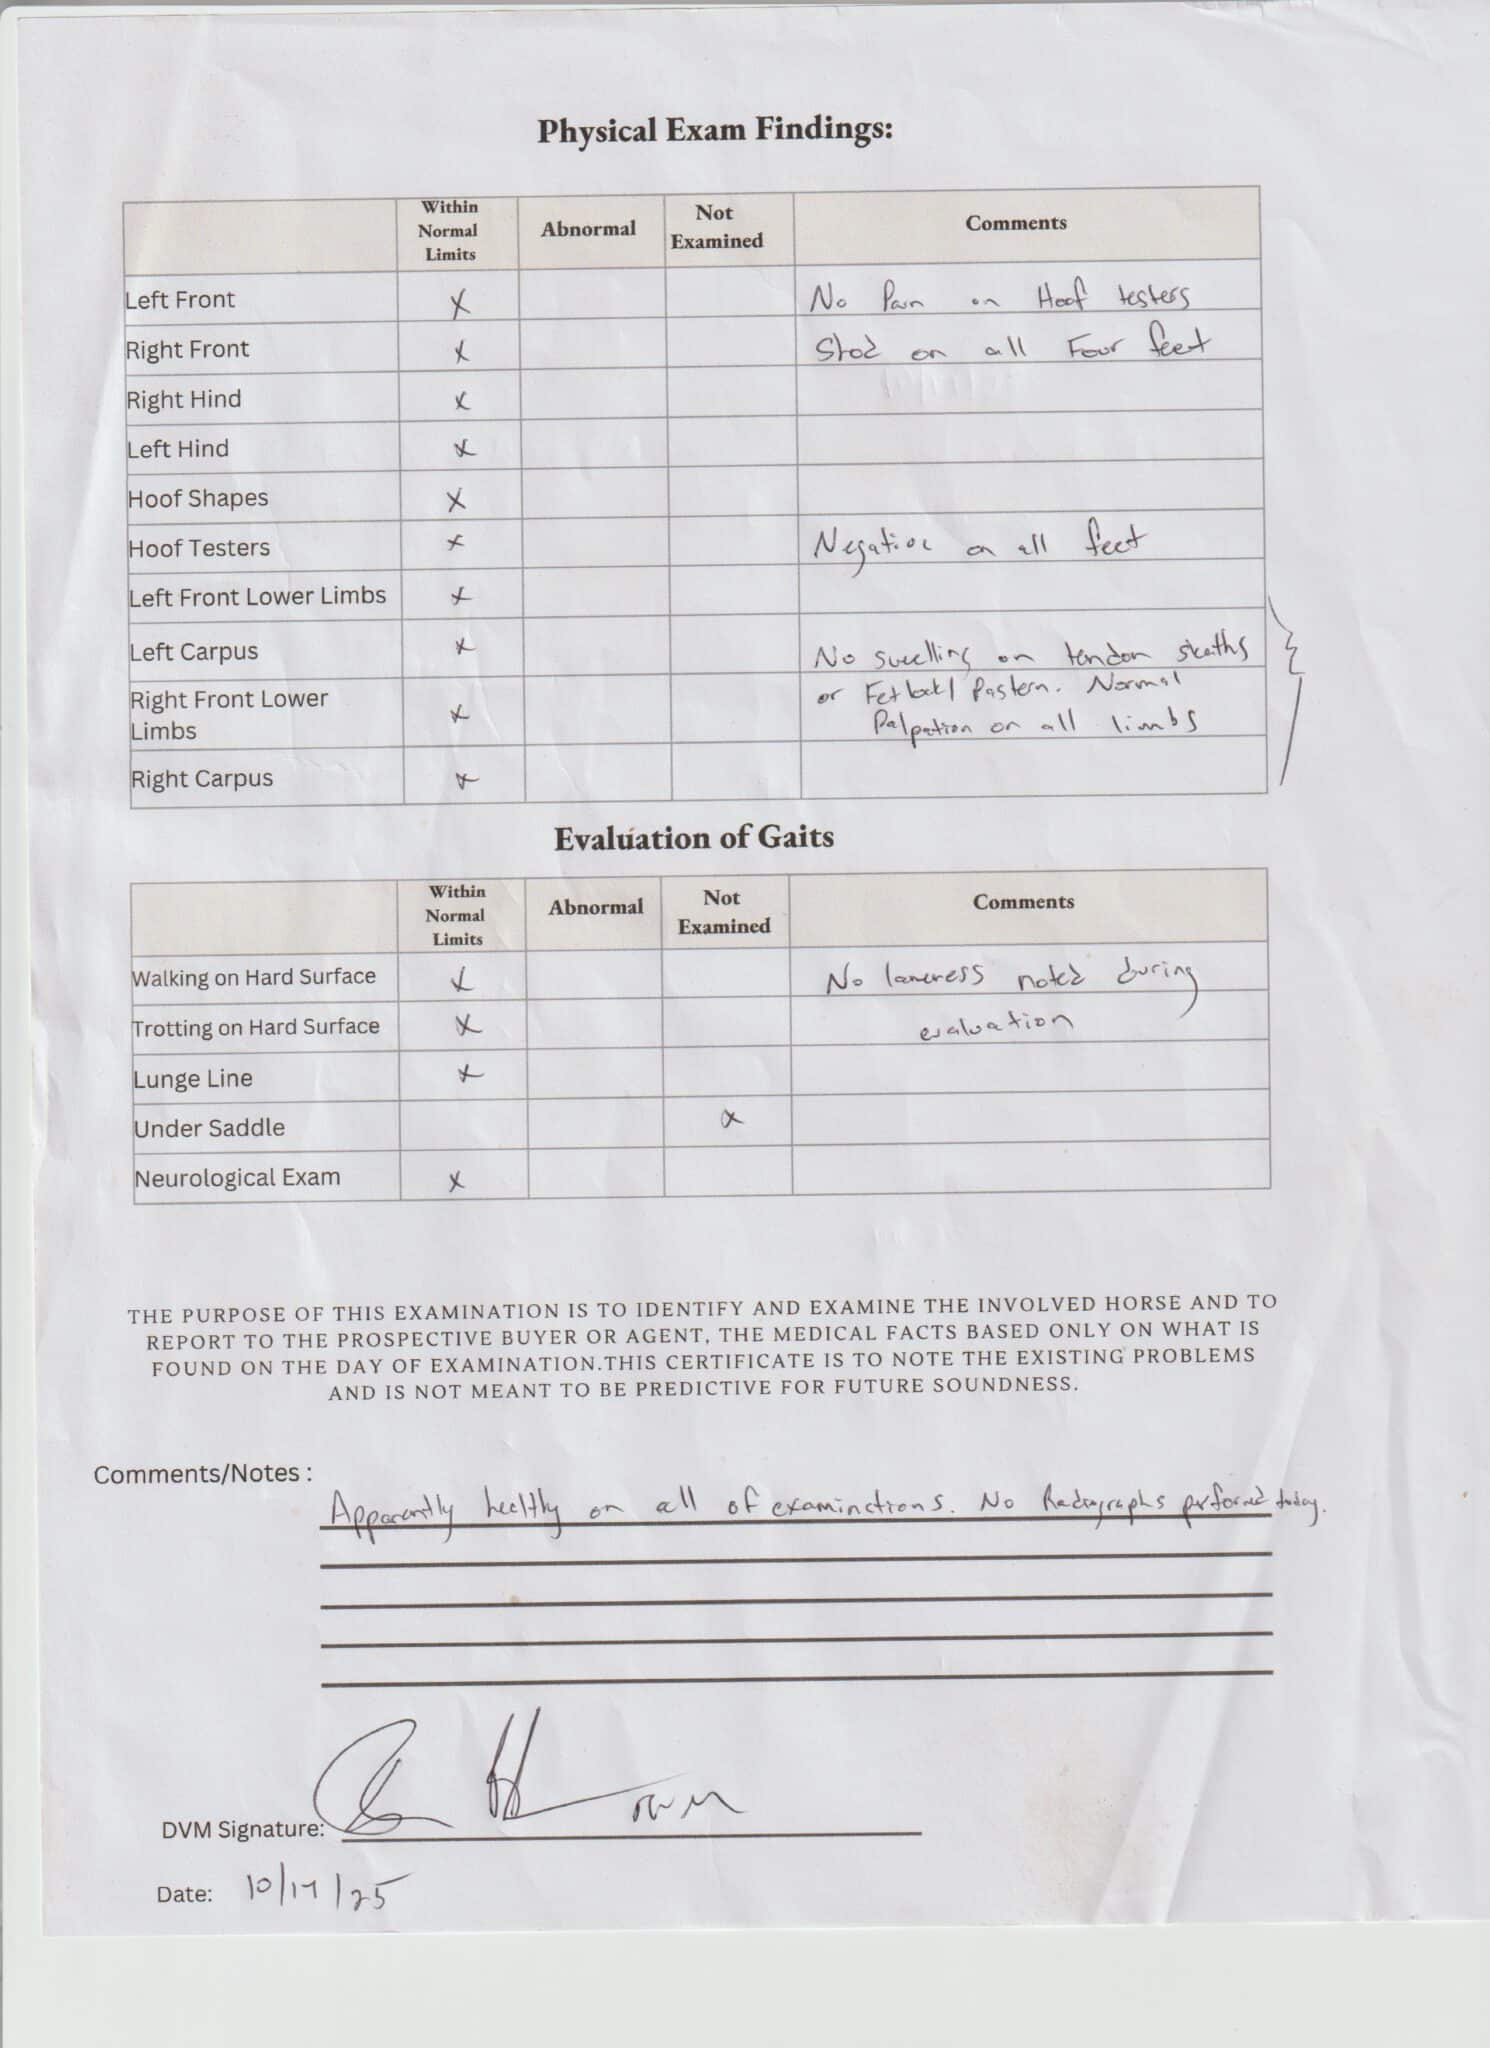 Physical Exam Findings:
Within Normal Limits
Abnormal
Not Examined
Comments
Left Front X No Pain on Hoof testers
Right Front X Shod on all Four feet
Right Hind X
Left Hind X
Hoof Shapes X
Hoof Testers X Negative on all feet
Left Front Lower Limbs X
Left Carpus X No swelling on tendon sheaths
Right Front Lower Limbs X or Fetlock/Pastern. Normal
Palpation on all limbs
Right Carpus X
Evaluation of Gaits
Within Normal Limits
Abnormal
Not Examined
Comments
Walking on Hard Surface X No lameness noted during
Trotting on Hard Surface X evaluation
Lunge Line X
Under Saddle X
Neurological Exam X
THE PURPOSE OF THIS EXAMINATION IS TO IDENTIFY AND EXAMINE THE INVOLVED HORSE AND TO
REPORT TO THE PROSPECTIVE BUYER OR AGENT, THE MEDICAL FACTS BASED ONLY ON WHAT IS
FOUND ON THE DAY OF EXAMINATION.THIS CERTIFICATE IS TO NOTE THE EXISTING PROBLEMS
AND IS NOT MEANT TO BE PREDICTIVE FOR FUTURE SOUNDNESS.
Comments/Notes :
Apparently healthy on all of examinations. No Radiographs performed today.
DVM Signature:
Date: 10/17/25